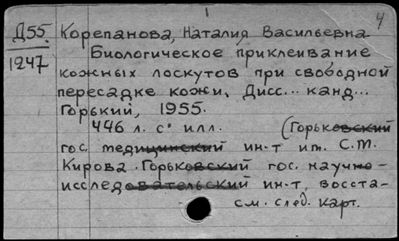 4
Д55 Корепанова, Наталия Васильевна
1247 Биологическое приклеивание
кожных лоскутов при свободной
пересадке кожи. Дисс... канд...
Горький, 1955.
446 л. с илл. (Горьковский
гос. медицинский ин-т им. С.М.
Кирова. Горьковский гос. научно-
исследовательский ин-т восста-
см. след. карт.